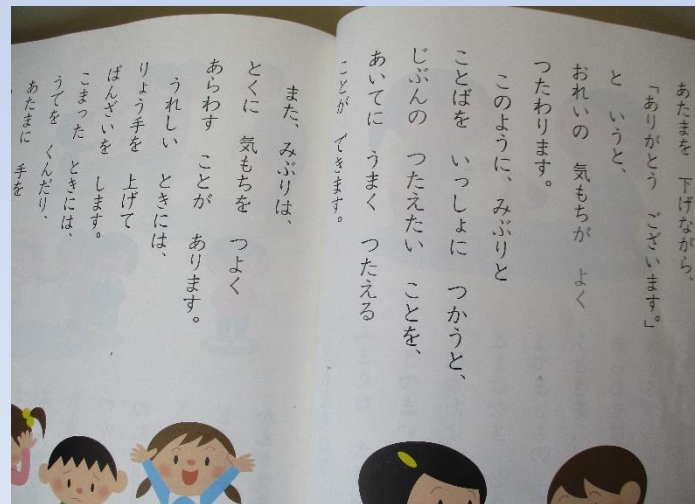 あたまを 下げながら、
「ありがとう ございます。」
と いうと、
おれいの 気もちが よく
つたわります。
このように、みぶりと
ことばを いっしょに つかうと、
じぶんの つたえたい ことを、
あいてに うまく つたえる
ことが できます。
また、みぶりは、
とくに 気もちを つよく
あらわす ことが あります。
うれしい ときには、
りょう手を 上げて
ばんざいを します。
こまった ときには、
うでを くんだり、
あたまに 手を